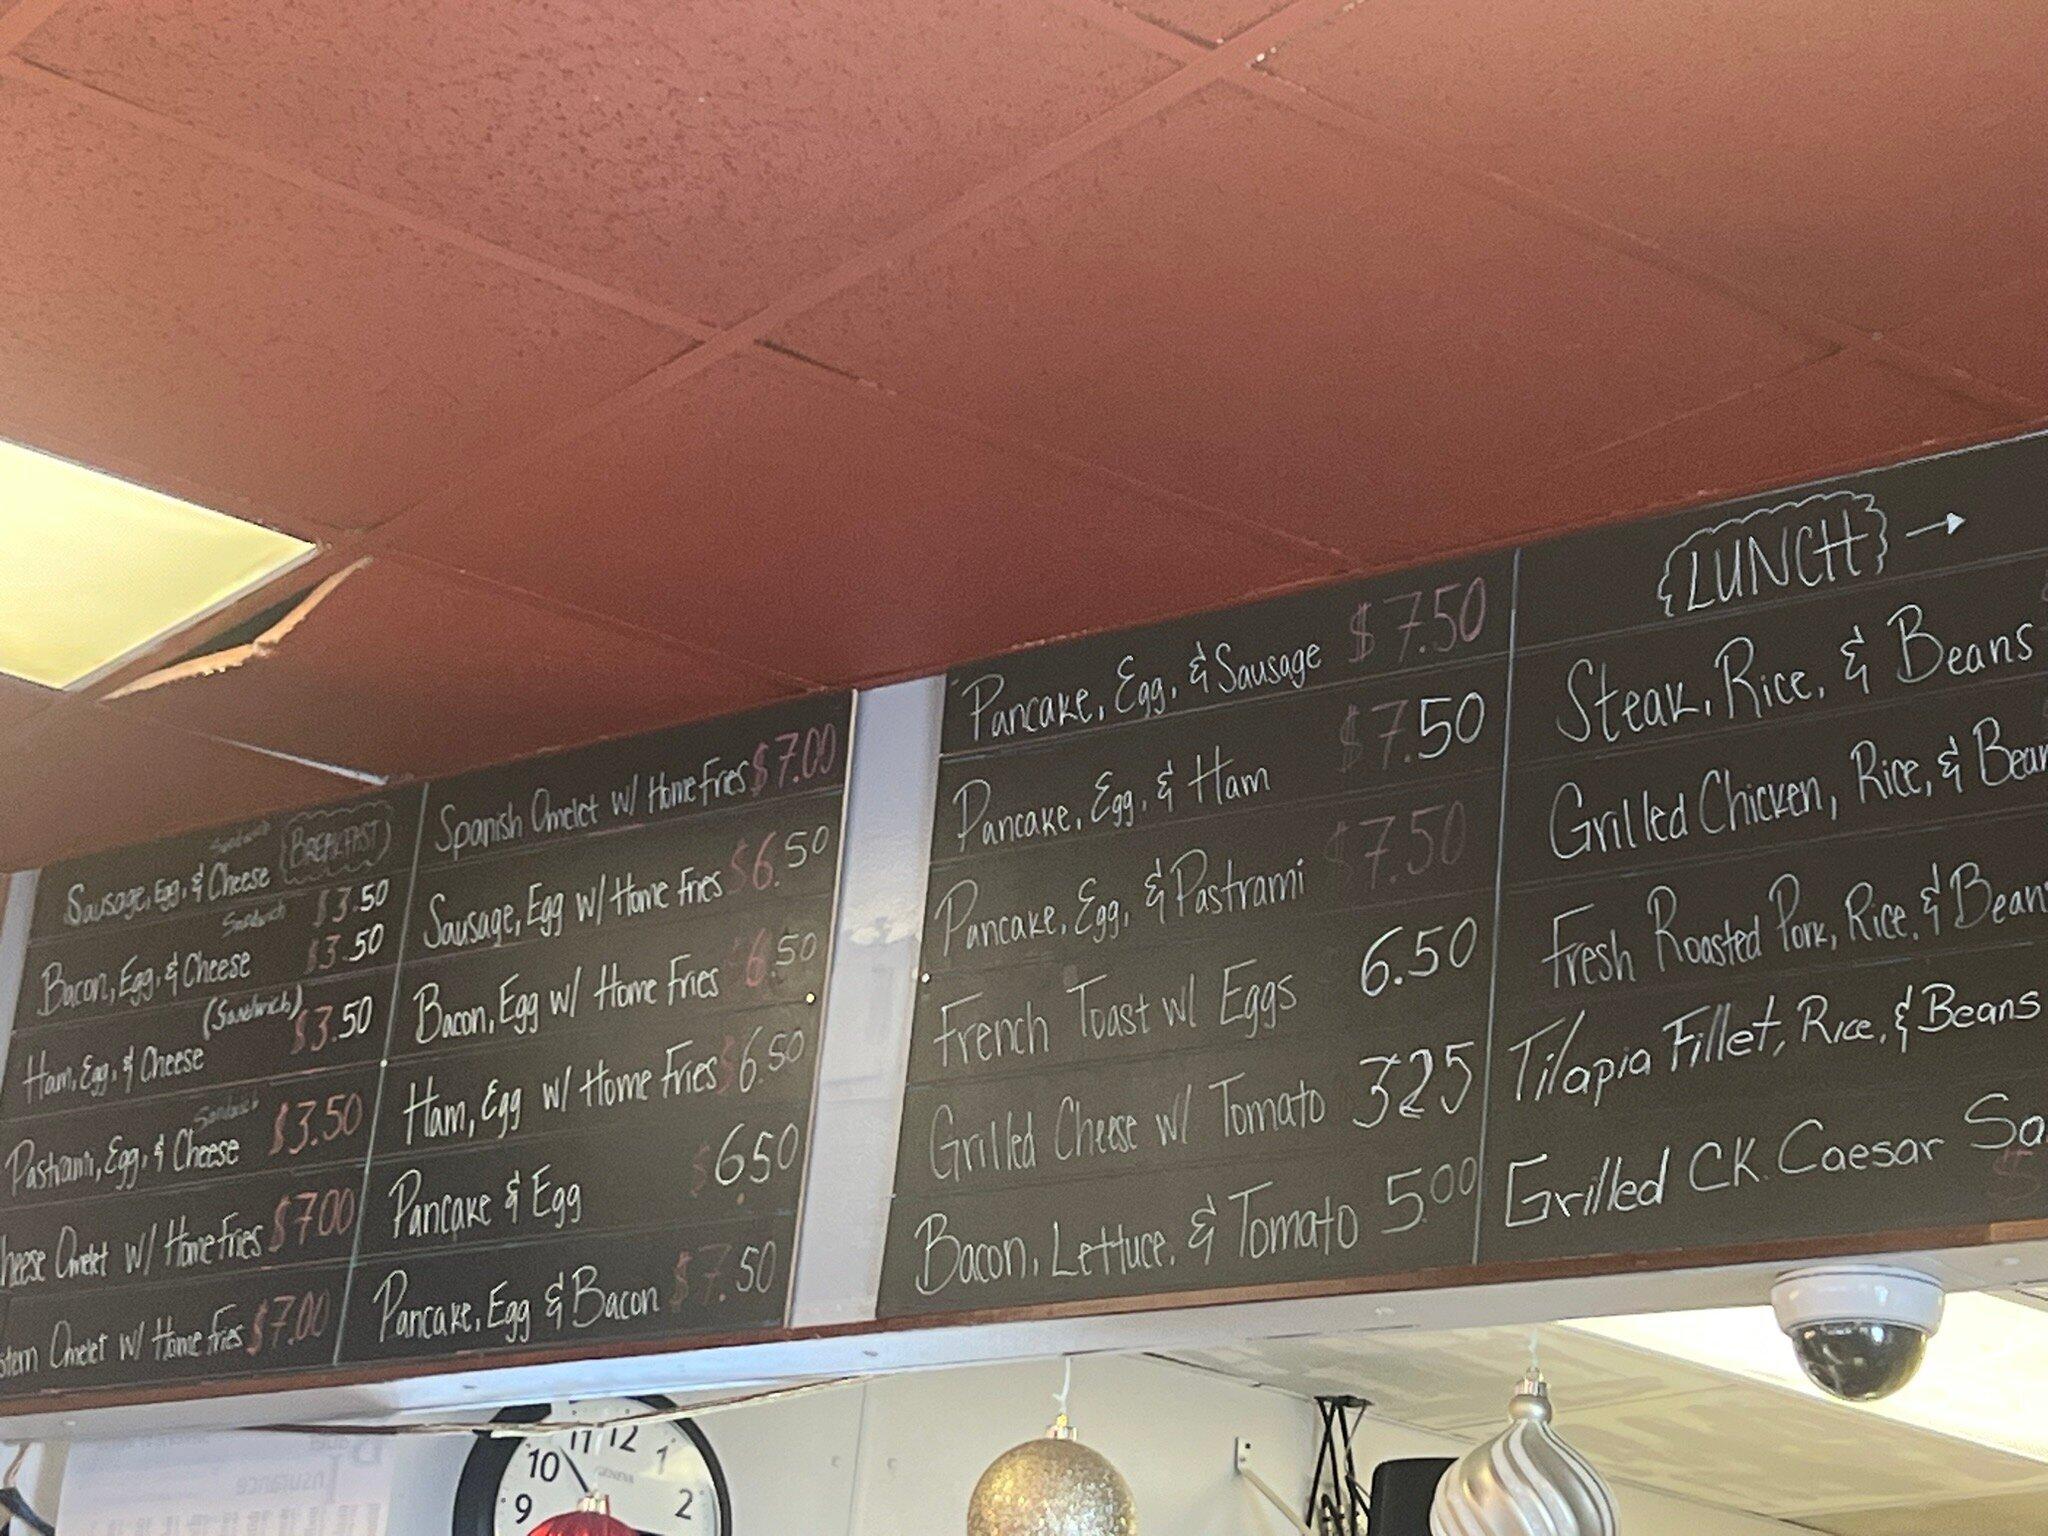 Sandwich
BREAKFAST
Sausage, Egg, & Cheese $3.50
Sandwich
Bacon, Egg, & Cheese $3.50
(Sandwich)
Ham, Egg, & Cheese $3.50
Sandwich
Pastrami, Egg, & Cheese $3.50
heese Omelet w/ Home Fries $7.00
stern Omelet w/ Home Fries $7.00
Spanish Omelet w/ Home Fries $7.00
Sausage, Egg w/ Home Fries $6.50
Bacon, Egg w/ Home Fries $6.50
Ham, Egg w/ Home Fries $6.50
Pancake & Egg $6.50
Pancake, Egg & Bacon $7.50
Pancake, Egg, & Sausage $7.50
Pancake, Egg, & Ham $7.50
Pancake, Egg, & Pastrami $7.50
French Toast w/ Eggs 6.50
Grilled Cheese w/ Tomato 325
Bacon, Lettuce, & Tomato 5.00
LUNCH →
Steak, Rice, & Beans
Grilled Chicken, Rice, & Bean
Fresh Roasted Pork, Rice, & Bean
Tilapia Fillet, Rice, & Beans
Grilled CK. Caesar Sa
$
9 10 11 12 1 2
GENEVA
Insurance